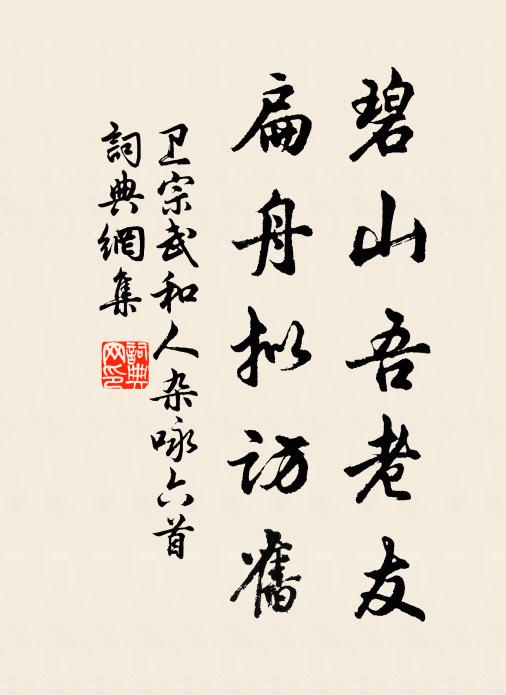 碧山吾老友
扁舟拟访舊
卫宗武和人杂咏六首
詞典網集
詞典网印